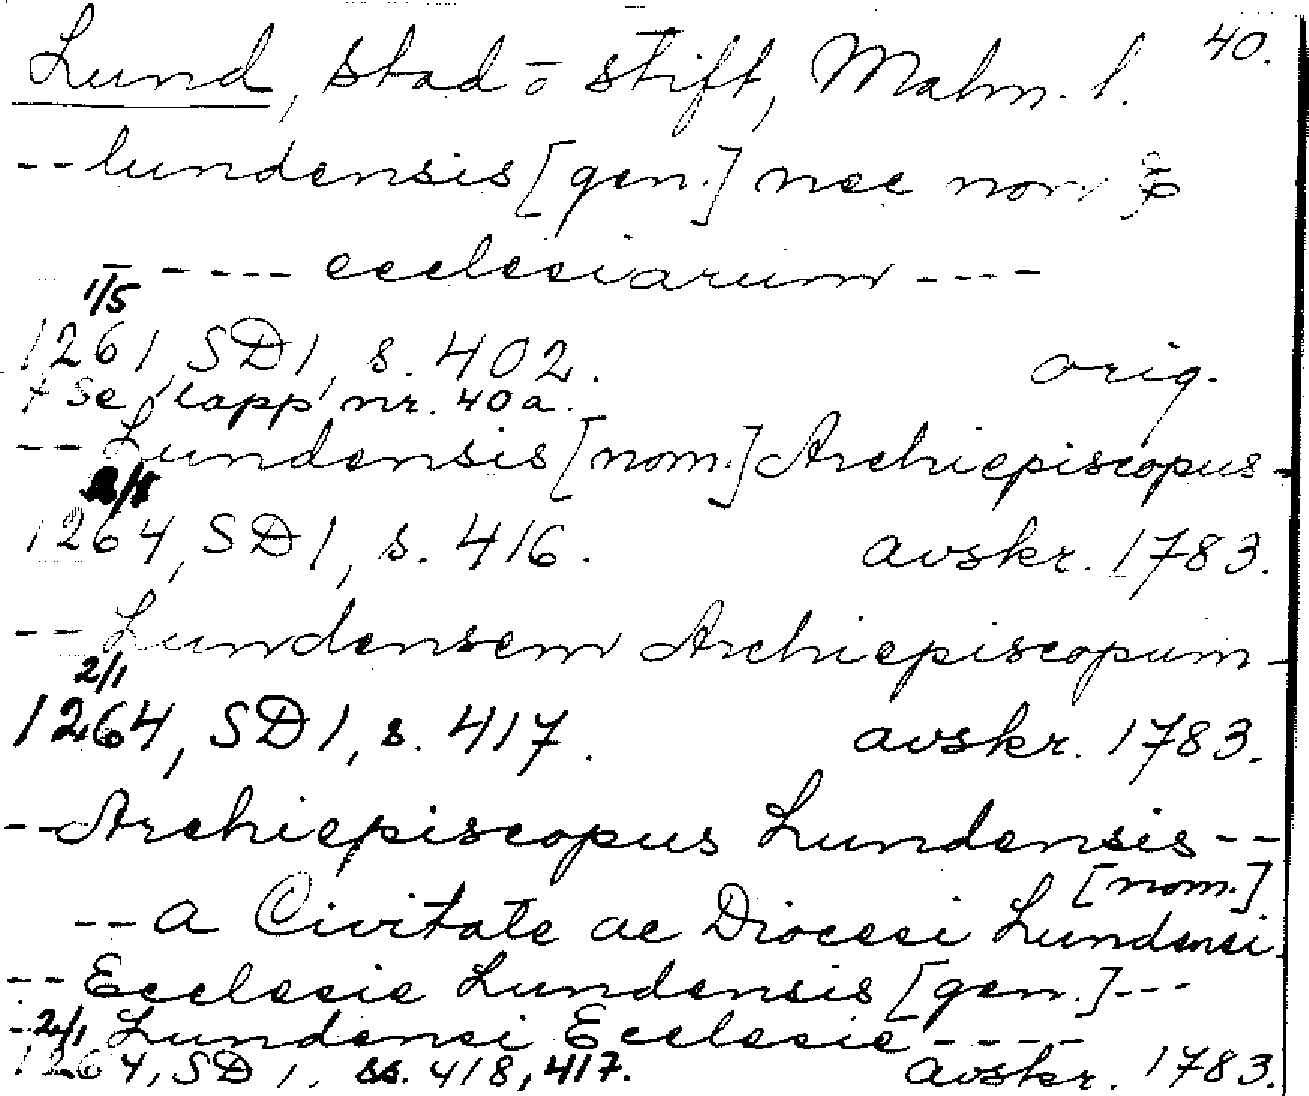 40.
Lund, stad o stift, Malm. l.
-- lundensis [gen.] nec non
----- ecclesiarum ----
1/5
1261, SD 1, s. 402. orig.
+ Se 'lapp' nr. 40a.
-- Lundensis [nom.] Archiepiscopus -
1264, SD 1, s. 416. avskr. 1783.
-- Lundensem Archiepiscopum -
2/1
1264, SD 1, s. 417. avskr. 1783.
-- Archiepiscopus Lundensis --
[nom.]
-- a Civitate ac Diocesi Lundensi
-- Ecclesie Lundensis [gen.] ---
- 2/1 Lundensi Ecclesie ----
1264, SD 1, ss. 418, 417. avskr. 1783.